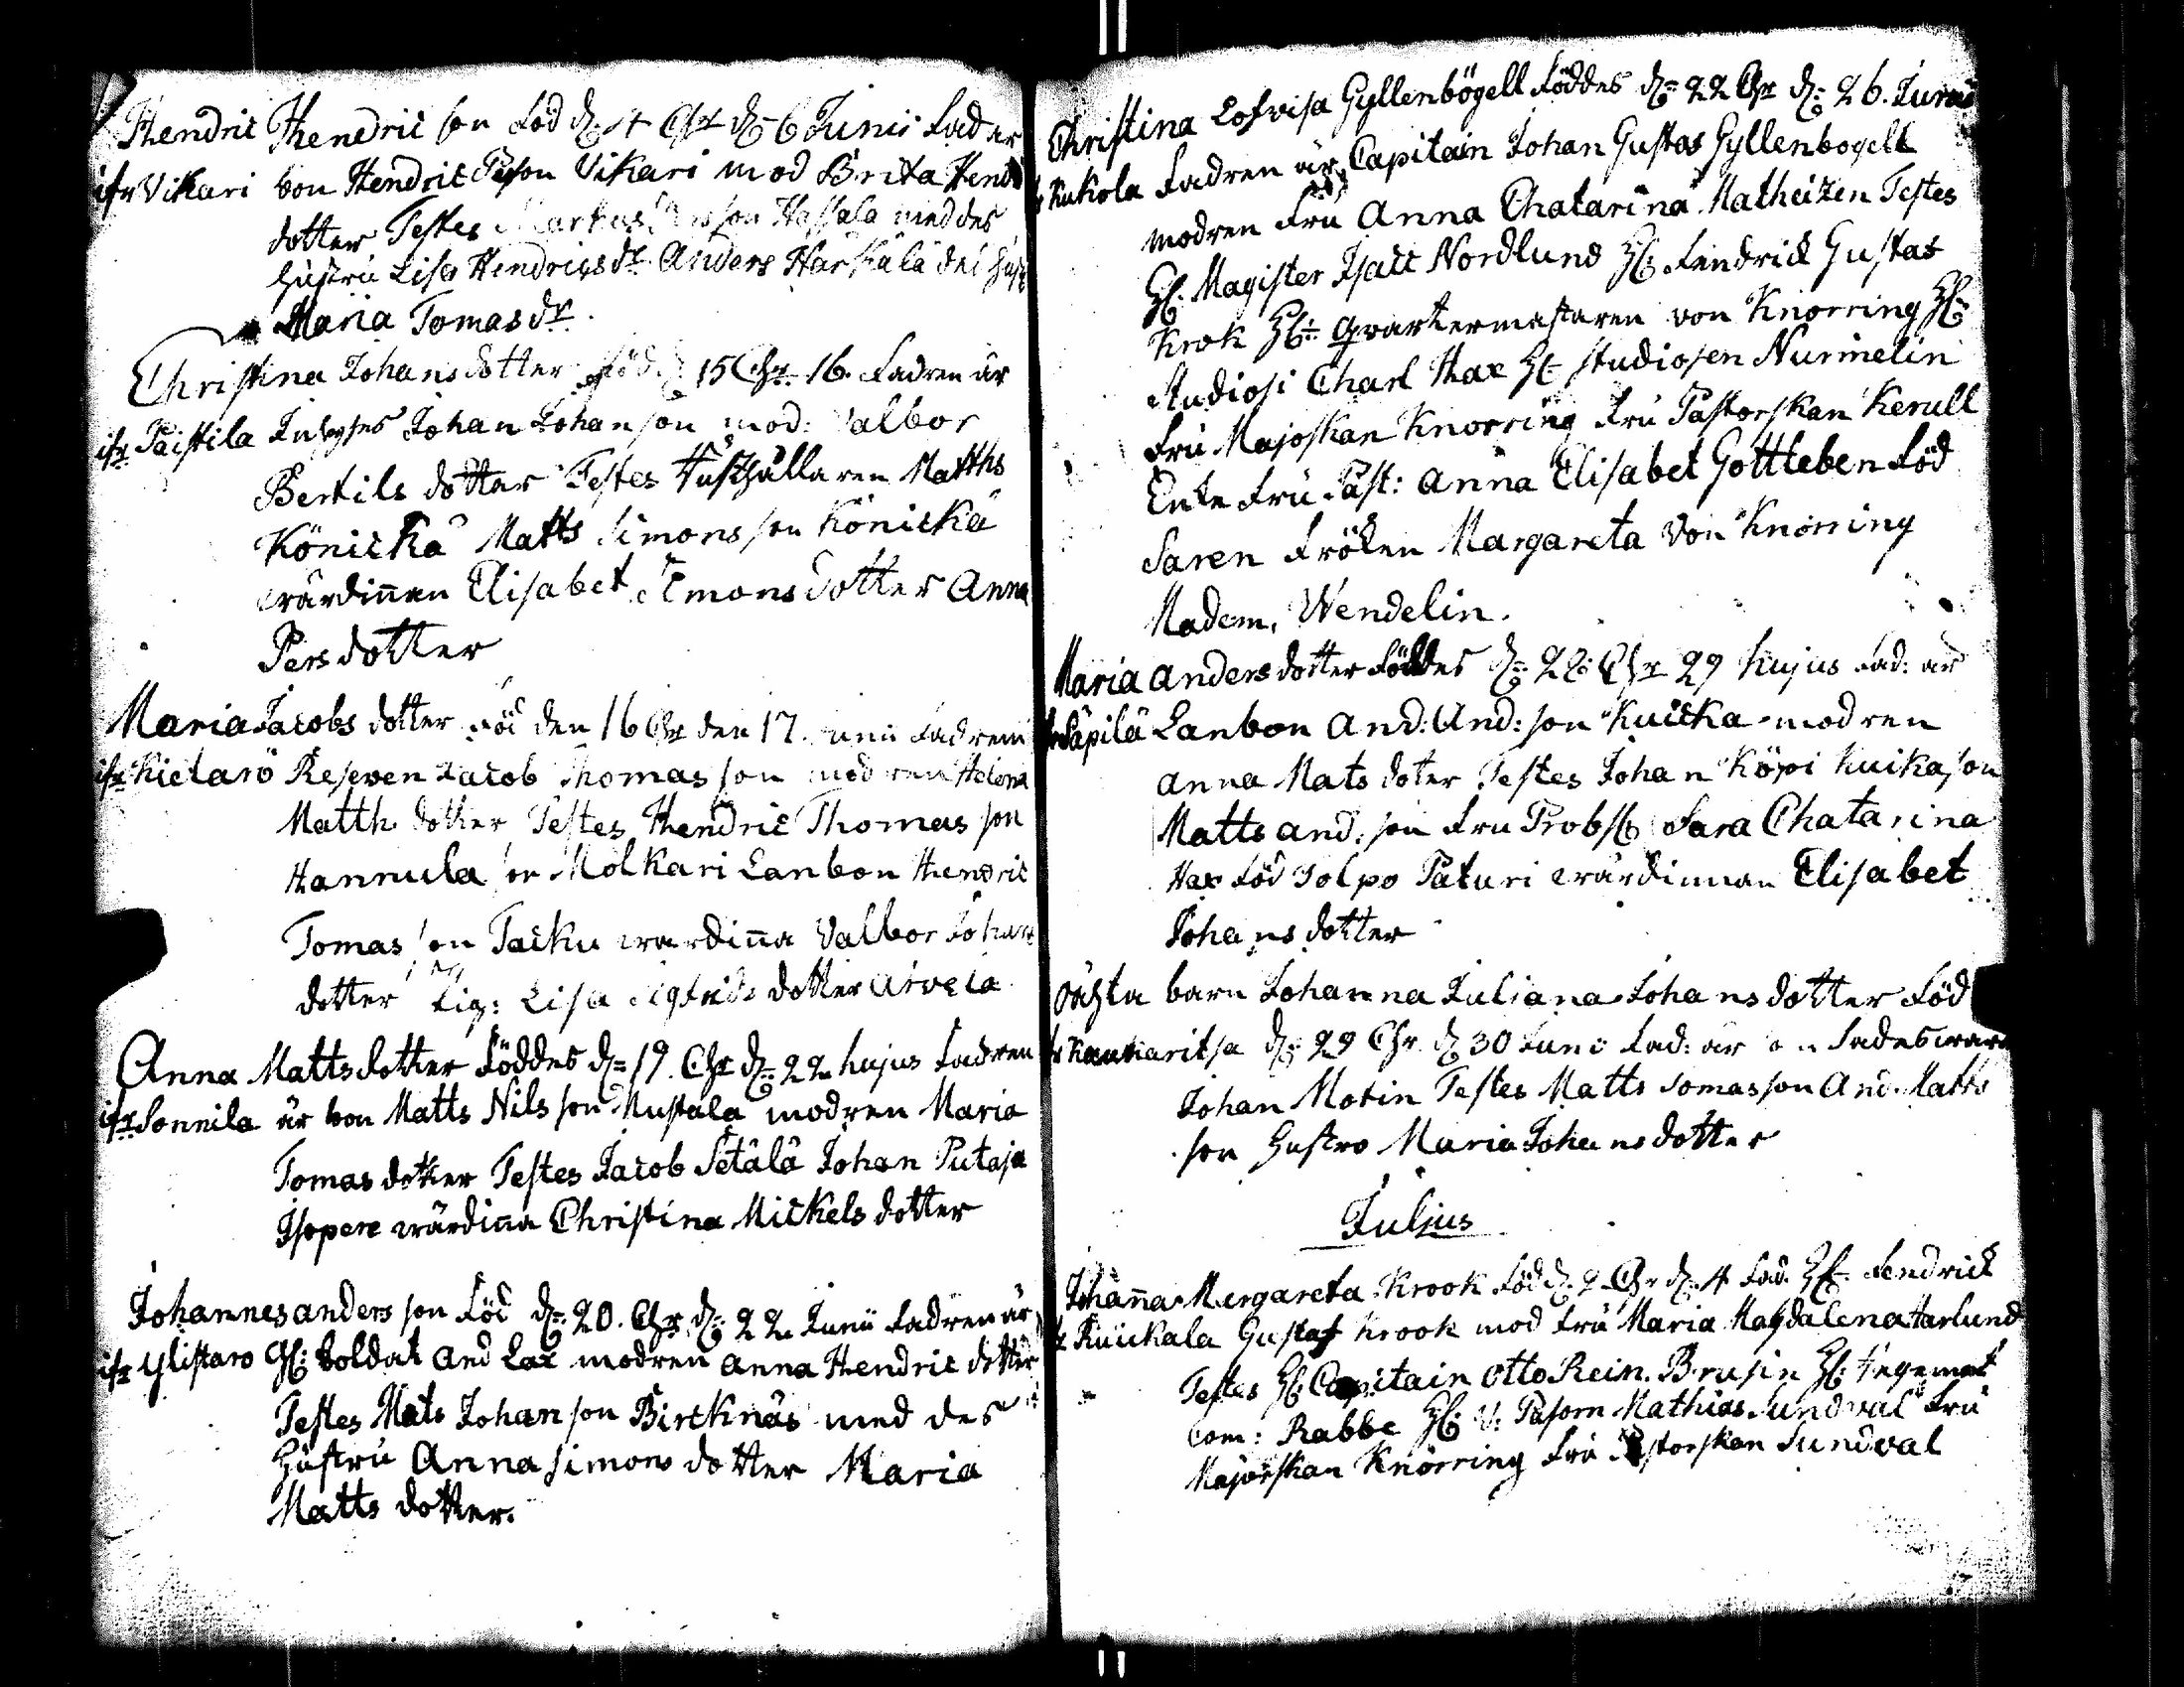 Hendric Hendric son Föd d: 4 Chr d: 6 Junii Fader
ifr Vikari bon Hendric Person Vikari mod Brita Hend
dotter Testes Markus son Hassala med des
hustru Lisa Hendricsdr Anders Harkälä des hust
Maria Tomas dr.
Christina Johans dotter född 15 Chr 16. Fadren är
ifr Paistila Inhyses Johan Johan son mod: Valbor
Bertils dotter Testes Rusthållaren Matths
Könickä Matts Simons son Könickä
wärdinnan Elisabet Simons dotter Anna
Pers dotter
Maria Jacobs dotter Föd den 16 Chr den 17. Junii Fadren
ifr Kietarö Reserven Jacob Thomas son modren Helena
Matth dotter Testes Hendric Thomas son
Hannula Molkari Lanbon Hendric
Tomas son Tacku wardinna Valbor Johans
dotter Pig: Lisa Sigfrids dotter Arvela
Anna Matts dotter Föddes d: 19. Chr d: 22 hujus Fadren
ifr Sonnila är bon Matts Nils son Mustala modren Maria
Tomas dotter Testes Jacob Setälä Johan Putaja
Isopere wärdinna Christina Mickels dotter
Johannes anders son Föd d: 20. Chr d: 22 Junii Fadren är
ifr Ylistaro soldat And Lax modren anna Hendric dotter
Testes Mats Johan son Bircknäs med des
Hustru Anna Simons dotter Maria
Matts dotter.
Christina Lofvisa Gyllenbögell Föddes d: 22 Chr d: 26. Junii
Kukola Fadren är Capitain Johan Gustas Gyllenbogell
modren Fru Anna Chatarina Matheizen Testes
H: Magister Isacc Nordlund H: Fendrick Gustaf
Krok H: Qvartermästaren von Knorring H:
Studiosi Charl Hax H: studiosen Nurmelin
Fru Majoskan Knorring Fru Pastorskan Kerull
Enke Fru Past: Anna Elisabet Gottleben Föd
Saren Fröken Margareta von Knorring
Madem. Wendelin.
Maria anders dotter Föddes d: 22 Chr 29 hujus Fad: är
Säpilä Lanbon And: And: son Kuicka modren
anna Mats doter Testes Johan Köpi Kuika son
Matts and: son Fru Probs Sara Chatarina
Hax Föd Tolpo Paturi wärdinnan Elisabet
Johans dotter
oächta barn Johanna Juliana Johans dotter Föd
Kaukaritsa d: 29 Chr d: 30 Juni Fad: är
Johan Motin Testes Matts Tomas son And. Matts
son Hustro Maria Johans dotter
Julius
Johanna Margareta Krook Föd d: 2 Chr d: 4 Fad. H: Fendrick
Ruickala Gustaf Krook mod Fru Maria Magdalena Harlund
Testes H: Capitain Otto Rein. Brusin H:
Com: Rabbe H: V: Pastorn Mathias Sundval Fru
Majorskan Knorring Fru Pastorskan Sundval